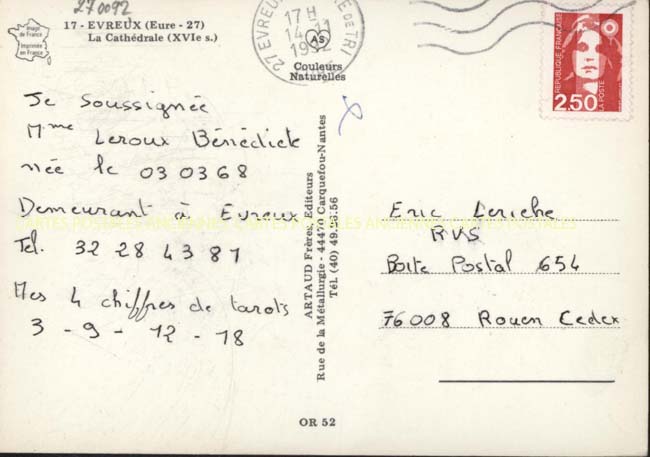 270092
17 - EVREUX (Eure - 27)
La Cathédrale (XVIe s.)
Image de France
Imprimée en France
27 EVREUX DE TRI
17 H
14 - 11
1992
AS
Couleurs
Naturelles
REPUBLIQUE FRANÇAISE
LA POSTE
2,50
Je soussignée
Mme Leroux Bénédicte
née le 03 03 68
Demeurant à Evreux
Tel. 32 28 43 81
Mes 4 chiffres de tarots
3 - 9 - 12 - 18
ARTAUD Frères, Editeurs
Rue de la Métallurgie - 44470 Carquefou-Nantes
Tél. (40) 49.56
Eric Leriche
RVS
Boite Postal 654
76008 Rouen Cedex
CARTES POSTALES ANCIENNES CARTES POSTALES ANCIENNES CARTES POSTALES
OR 52